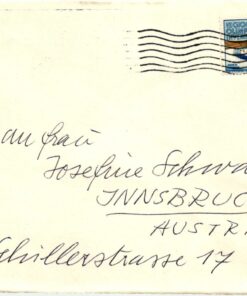 an frau
Josefine Schwa
INNSBRUC
AUSTR
Schillerstrasse 17